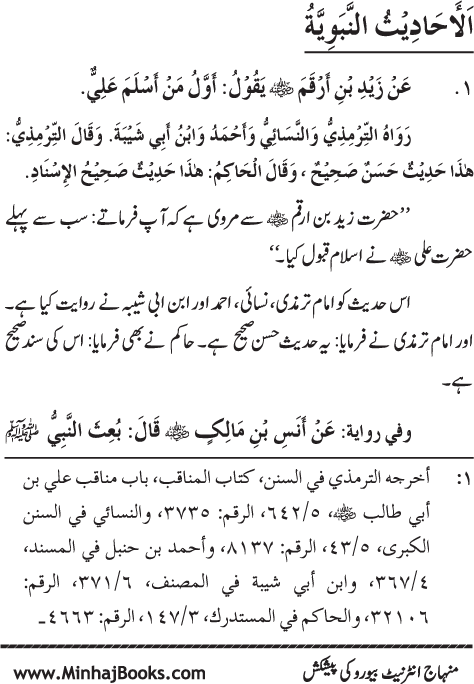 اَلْأَحَادِيْثُ النَّبَوِيَّةُ
١. عَنْ زَيْدِ بْنِ أَرْقَمَ رضی اللہ عنہ يَقُوْلُ: أَوَّلُ مَنْ أَسْلَمَ عَلِيٌّ.
رَوَاهُ التِّرْمِذِيُّ وَالنَّسَائِيُّ وَأَحْمَدُ وَابْنُ أَبِي شَيْبَةَ. وَقَالَ التِّرْمِذِيُّ:
هٰذَا حَدِيْثٌ حَسَنٌ صَحِيْحٌ، وَقَالَ الْحَاكِمُ: هٰذَا حَدِيْثٌ صَحِيْحُ الإِسْنَادِ.
’’حضرت زید بن ارقم رضی اللہ عنہ سے مروی ہے کہ آپ فرماتے: سب سے پہلے
حضرت علی رضی اللہ عنہ نے اسلام قبول کیا۔‘‘
اس حدیث کو امام ترمذی، نسائی، احمد اور ابن ابی شیبہ نے روایت کیا ہے۔
اور امام ترمذی نے فرمایا: یہ حدیث حسن صحیح ہے۔ حاکم نے بھی فرمایا: اس کی سند صحیح
ہے۔
وفي رواية: عَنْ أَنَسِ بْنِ مَالِكٍ رضی اللہ عنہ قَالَ: بُعِثَ النَّبِيُّ ﷺ
١: أخرجه الترمذي في السنن، كتاب المناقب، باب مناقب علي بن
أبي طالب رضی اللہ عنہ، ٥/٦٤٢، الرقم: ٣٧٣٥، والنسائي في السنن
الكبرى، ٥/٤٣، الرقم: ٨١٣٧، وأحمد بن حنبل في المسند،
٤/٣٦٧، وابن أبي شيبة في المصنف، ٦/٣٧١، الرقم:
٣٢١٠٦، والحاكم في المستدرك، ٣/١٤٧، الرقم: ٤٦٦٣۔
منہاج انٹرنیٹ بیورو کی پیشکش www.MinhajBooks.com